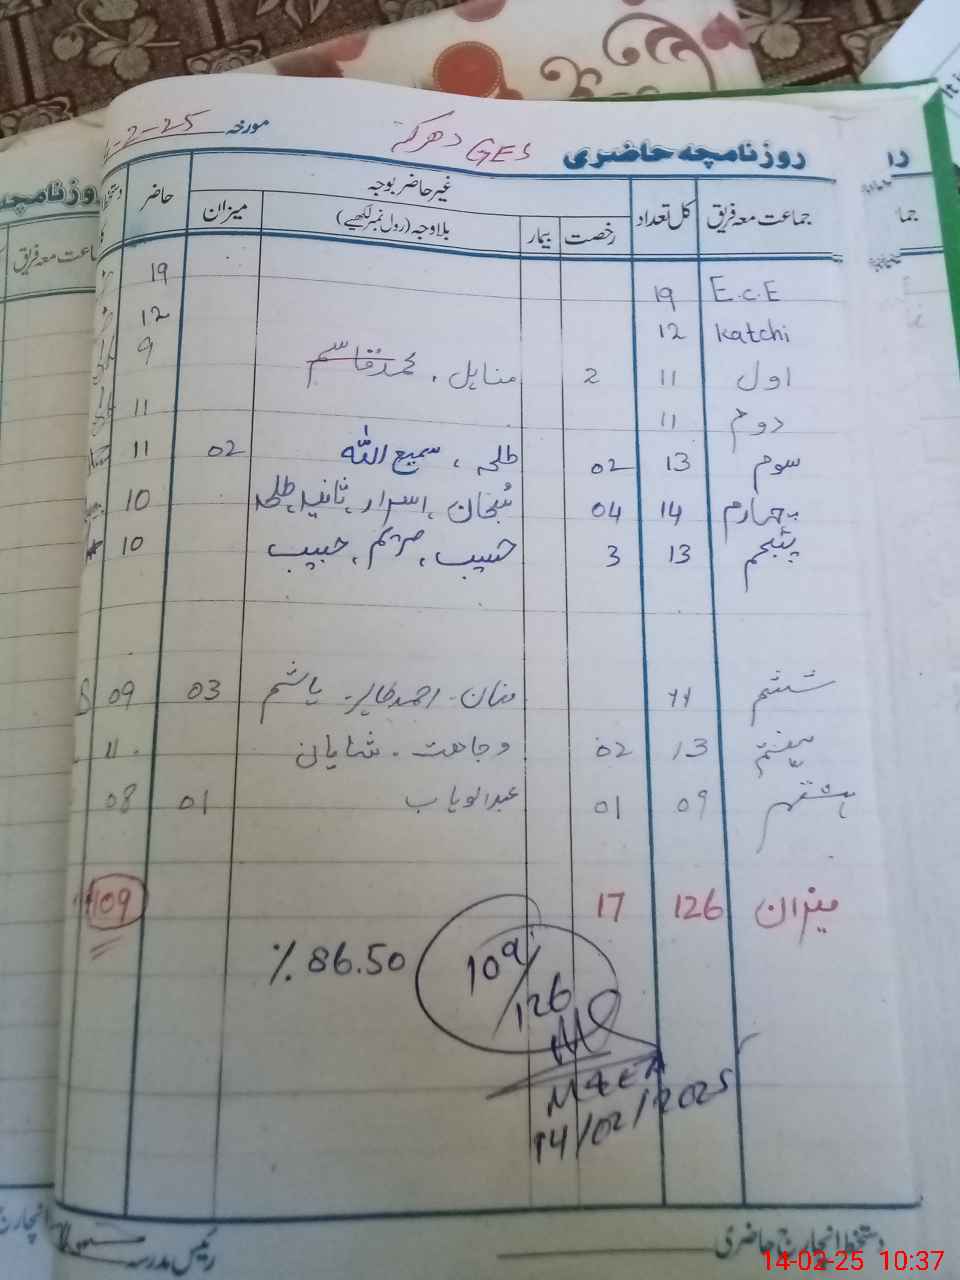 روزنامچہ حاضری GES دھرکہ مورخہ 2-25
جماعت معہ فریق کل تعداد غیر حاضر بوجہ حاضر
رخصت بیمار بلاوجہ (رول نمبر لکھیے) میزان
E.C.E 19 19
Katchi 12 12
اول 11 2 مناہل ، محمد قاسم 9
دوم 11 11
سوم 13 02 طلحہ ، سمیع اللہ 02 11
چہارم 14 04 سبحان ، اسرار ، ثانیہ ، طلحہ 10
پنجم 13 3 حبیب ، مریم ، حبیب 10
ششم 11 منان - احمد طاہر - ہاشم 03 09
ہفتم 13 02 وجاہت - شایان 11
ہشتم 09 01 عبدالوہاب 01 08
میزان 126 17 109
% 86.50
109/126
M&EA
14/02/2025
دستخط انچارج حاضری رئیس مدرسہ
روزنامچہ
جماعت معہ فریق
14-02-25 10:37